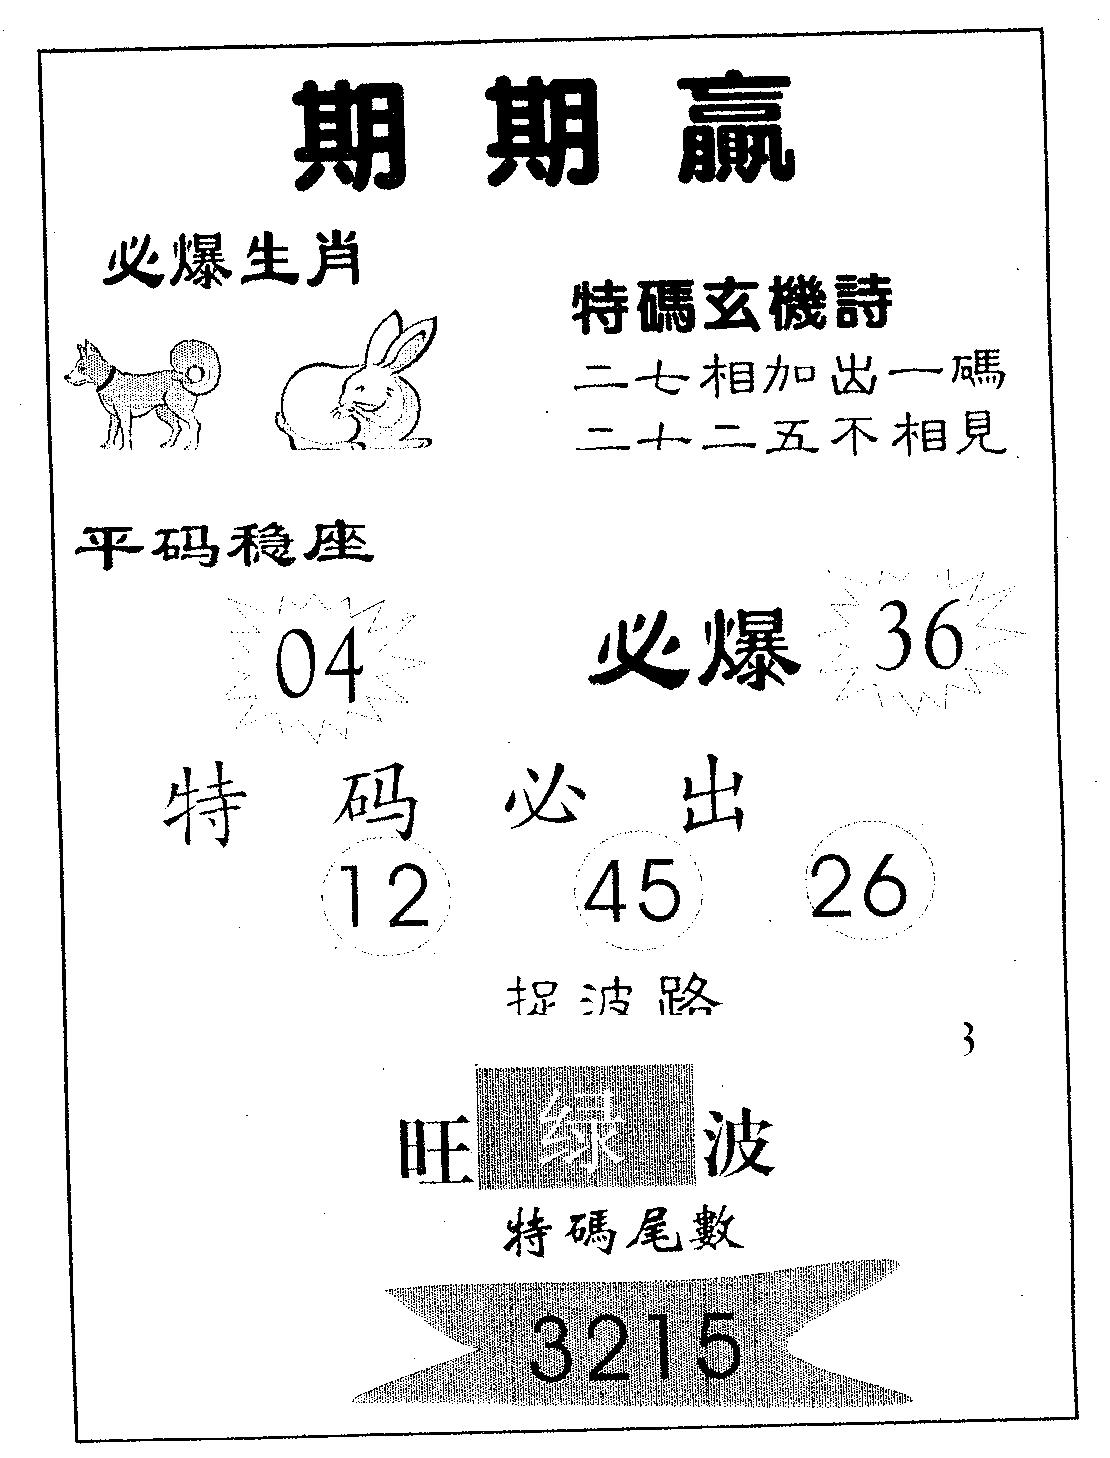 期期贏
必爆生肖
特碼玄機詩
二七相加出一碼
二十二五不相見
平码稳座
04
必爆 36
特码必出
12 45 26
捉波路
3
旺绿波
特碼尾數
3215